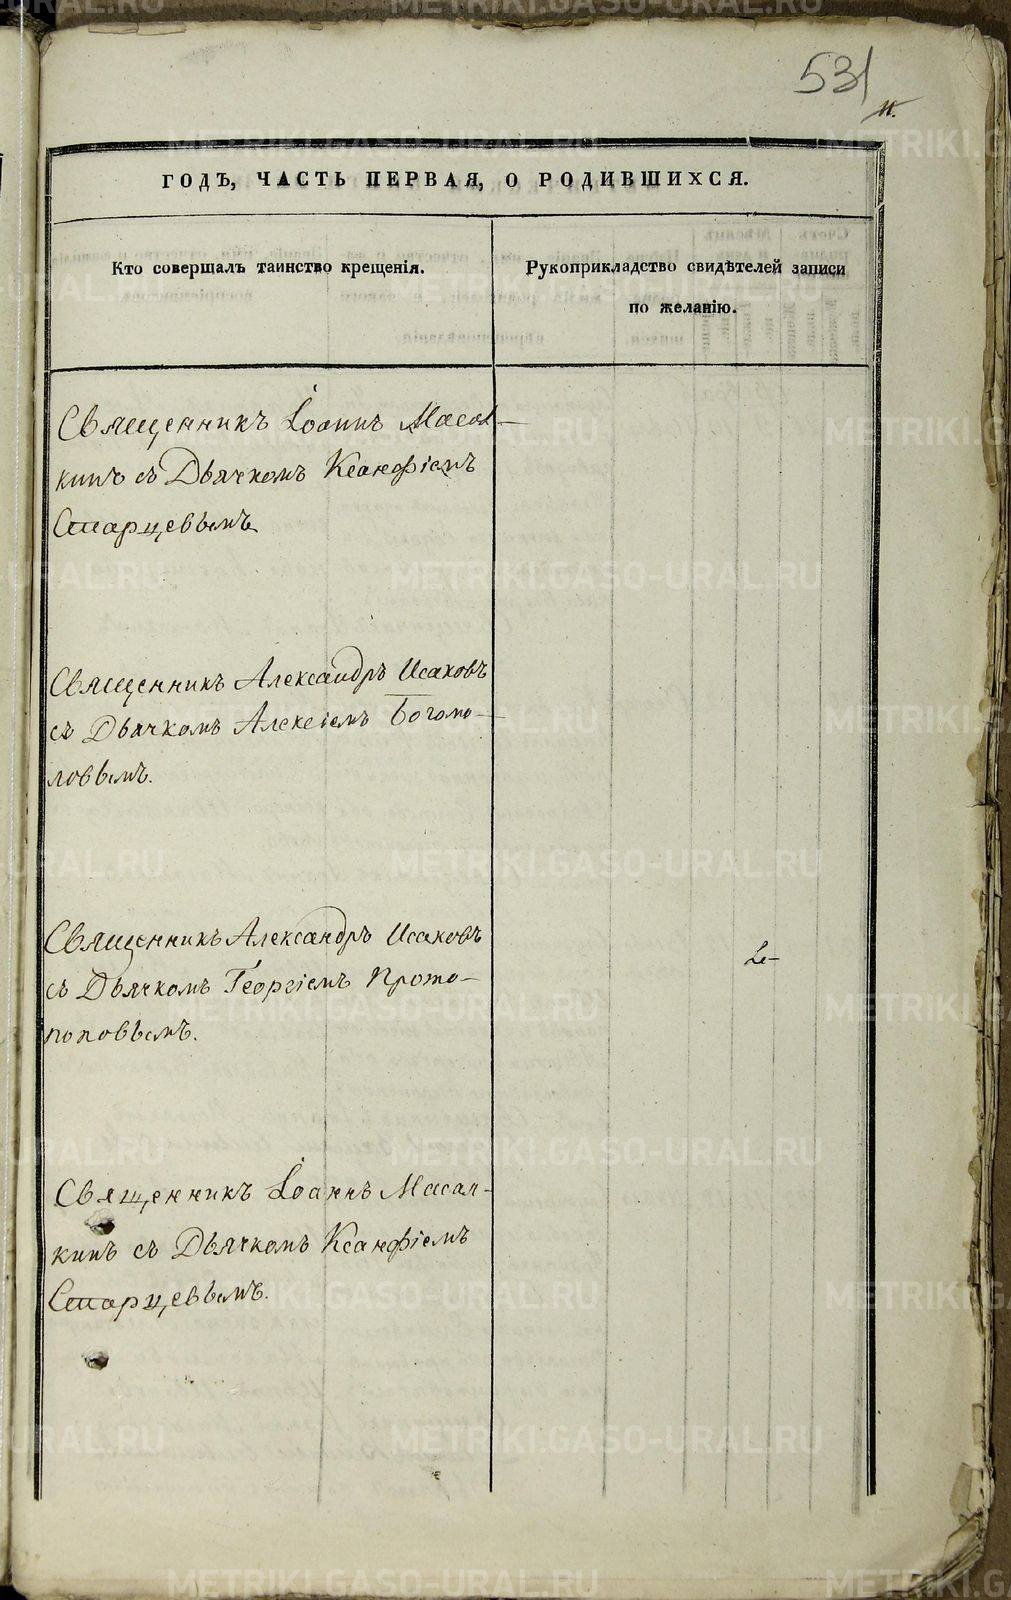 531
11.
ГОДЪ, ЧАСТЬ ПЕРВАЯ, О РОДИВШИХСЯ.
Кто совершалъ таинство крещенія.
Рукоприкладство свидѣтелей записи
по желанію.
Священникъ Іоаннъ Масал-
кинъ съ Дьячкомъ Ксанфіемъ
Старцевымъ
Священникъ Александръ Исаковъ
съ Дьячкомъ Алексіемъ Богомо-
ловымъ.
Священникъ Александръ Исаковъ
съ Дьячкомъ Георгіемъ Прото-
поповымъ.
Священникъ Іоаннъ Масал-
кинъ съ Дьячкомъ Ксанфіемъ
Старцевымъ.
METRIKI.GASO-URAL.RU